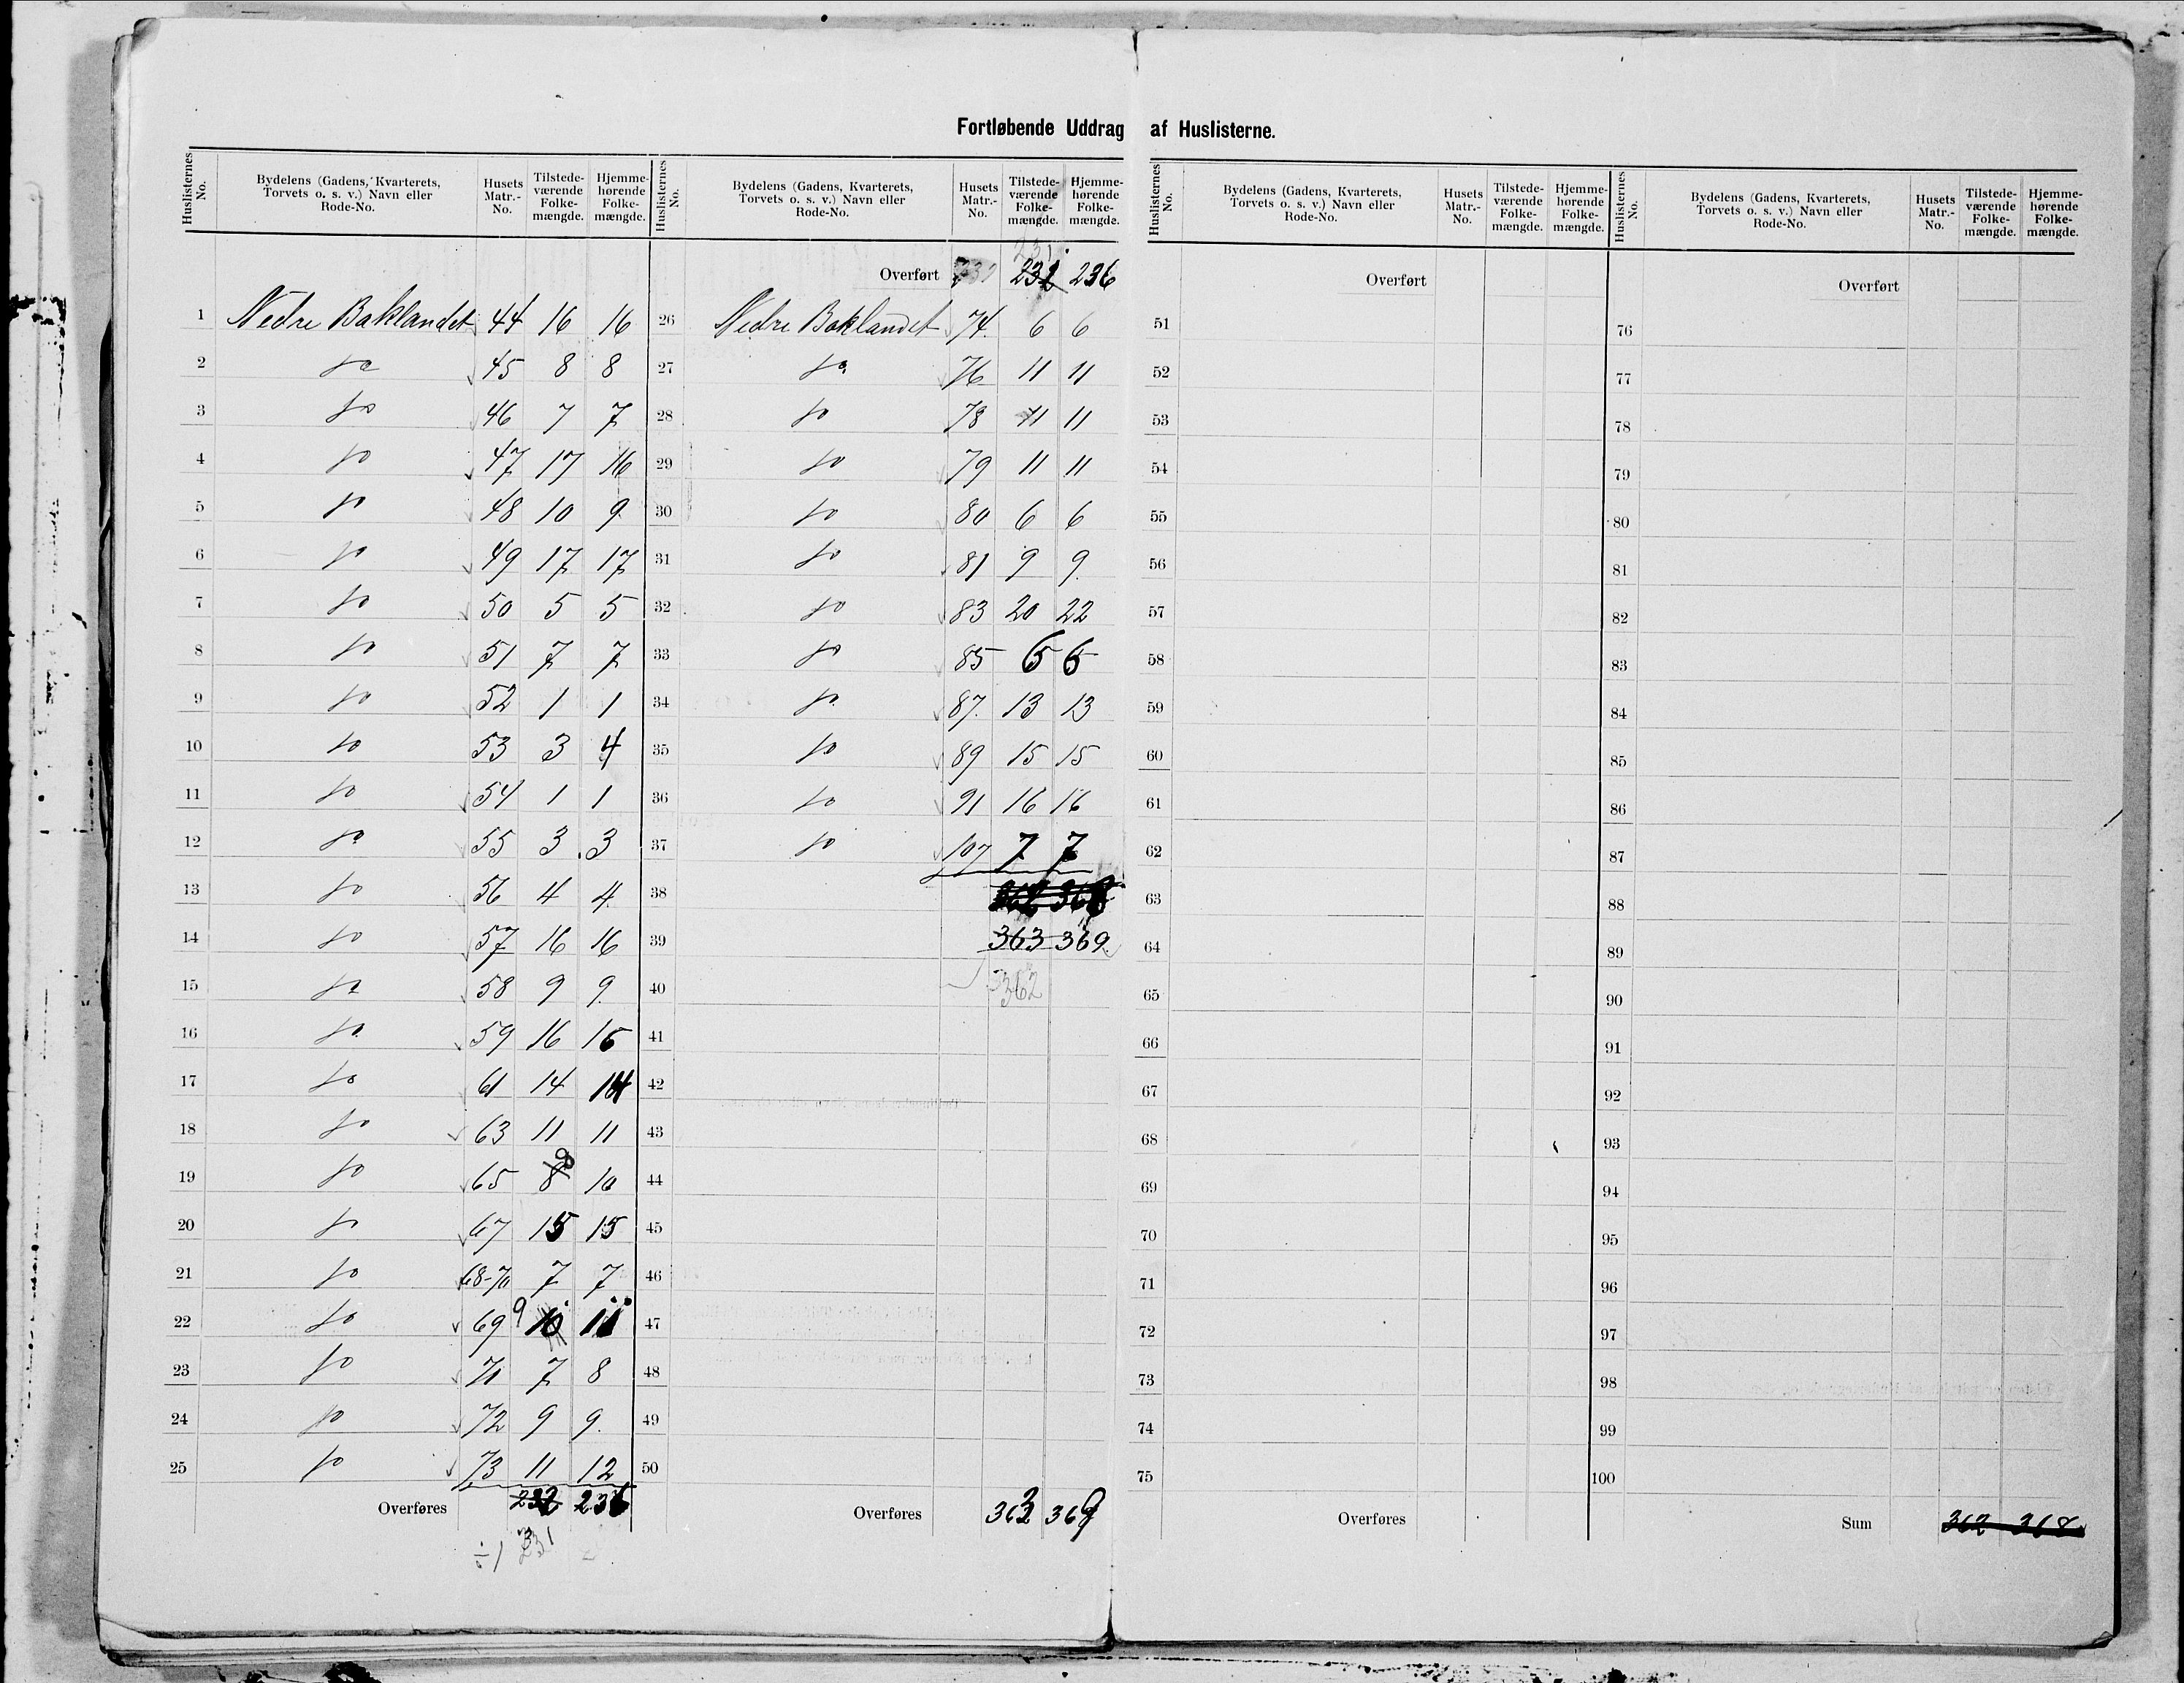 Fortløbende Uddrag af Huslisterne.
Huslisternes No. Bydelens (Gadens, Kvarterets, Torvets o. s. v.) Navn eller Rode-No. Husets Matr.-No. Tilstedeværende Folkemængde. Hjemmehørende Folkemængde.
1 Nedre Baklandet 44 16 16
2 do 45 8 8
3 do 46 7 7
4 do 47 17 16
5 do 48 10 9
6 do 49 17 17
7 do 50 5 5
8 do 51 7 7
9 do 52 1 1
10 do 53 3 4
11 do 54 1 1
12 do 55 3 3
13 do 56 4 4
14 do 57 16 16
15 do 58 9 9
16 do 59 16 16
17 do 61 14 14
18 do 63 11 11
19 do 65 8 9 10
20 do 67 15 15
21 do 68-70 7 7
22 do 69 9 10 11
23 do 71 7 8
24 do 72 9 9
25 do 73 11 12
Overføres 232 236
÷1 231
Huslisternes No. Bydelens (Gadens, Kvarterets, Torvets o. s. v.) Navn eller Rode-No. Husets Matr.-No. Tilstedeværende Folkemængde. Hjemmehørende Folkemængde.
231
Overført 232 236
26 Nedre Baklandet 74 6 6
27 do 76 11 11
28 do 78 11 11
29 do 79 11 11
30 do 80 6 6
31 do 81 9 9
32 do 83 20 22
33 do 85 6 6
34 do 87 13 13
35 do 89 15 15
36 do 91 16 16
37 do 107 7 7
38 362 368
39 363 369
40 362
41
42
43
44
45
46
47
48
49
50
Overføres 363 369
Huslisternes No. Bydelens (Gadens, Kvarterets, Torvets o. s. v.) Navn eller Rode-No. Husets Matr.-No. Tilstedeværende Folkemængde. Hjemmehørende Folkemængde.
Overført
51
52
53
54
55
56
57
58
59
60
61
62
63
64
65
66
67
68
69
70
71
72
73
74
75
Overføres
Huslisternes No. Bydelens (Gadens, Kvarterets, Torvets o. s. v.) Navn eller Rode-No. Husets Matr.-No. Tilstedeværende Folkemængde. Hjemmehørende Folkemængde.
Overført
76
77
78
79
80
81
82
83
84
85
86
87
88
89
90
91
92
93
94
95
96
97
98
99
100
Sum 362 368